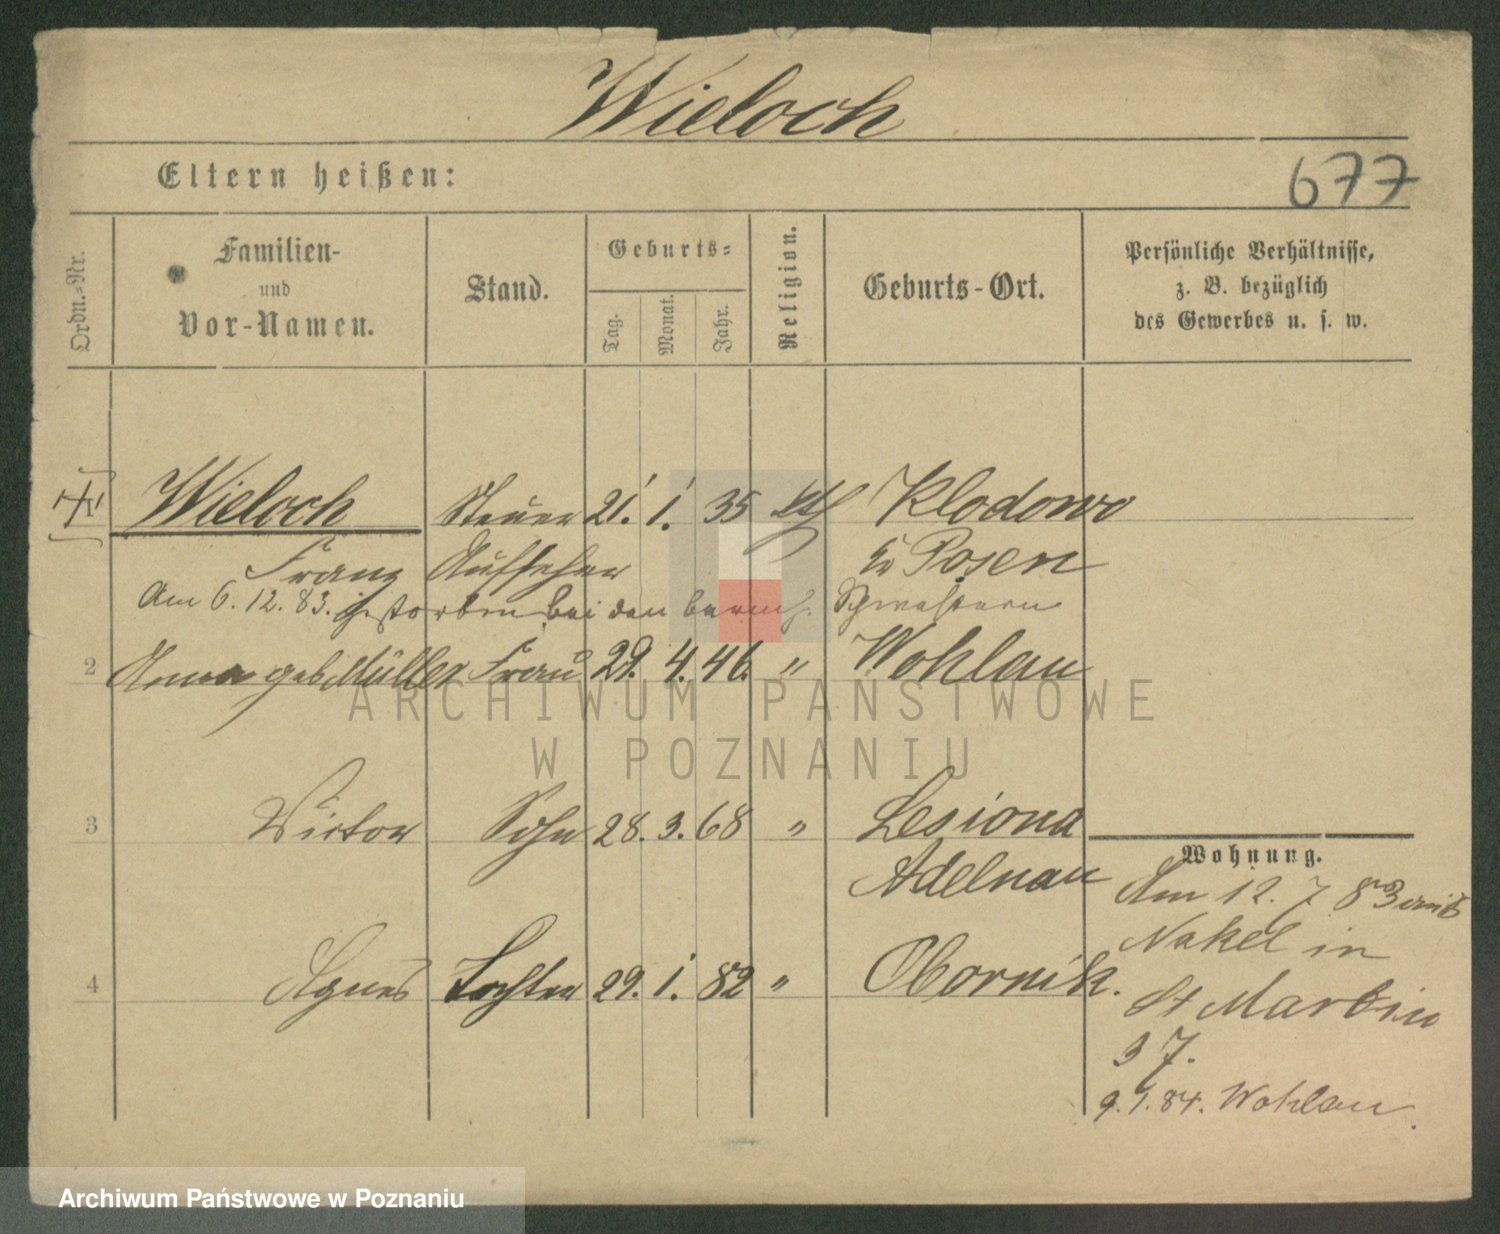 Wieloch
Eltern heißen:
677
Ordn.-Nr.
Familien-
und
Vor-Namen.
Stand.
Geburts-
Tag.
Monat.
Jahr.
Religion.
Geburts-Ort.
Persönliche Verhältnisse,
z. B. bezüglich
des Gewerbes u. s. w.
Wieloch Steuer 21. 1. 35 kth Klodowo
Franz Aufseher Kr Posen
Am 6. 12. 83. gestorben bei den barmh. Schwestern
2 Anna geb Müller Frau 29. 4. 46. " Wohlau
ARCHIWUM PAŃSTWOWE
W POZNANIU
3 Victor Sohn 28. 3. 68 " Lesiona
Adelnau
Wohnung.
Am 12. 7 83 aus
Nakel in
4 Agnes Tochter 29. 1. 82 " Obornik.
St Martin
37.
9. 1. 84. Wohlau.
Archiwum Państwowe w Poznaniu